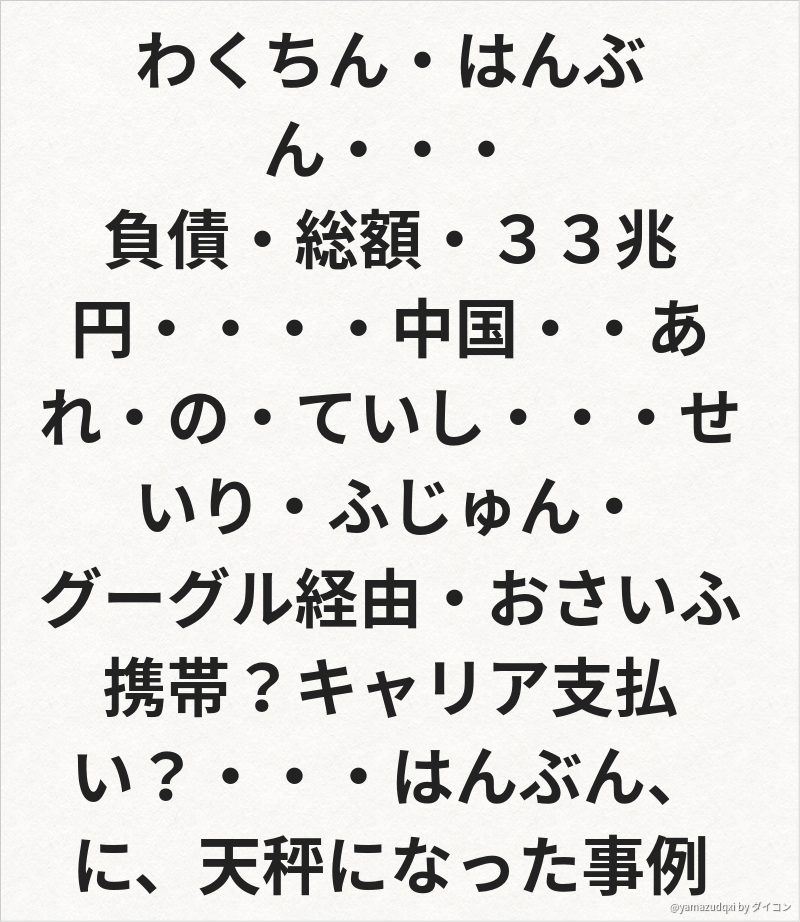 わくちん・はんぶ
ん・・・
負債・総額・３３兆
円・・・・中国・・あ
れ・の・ていし・・・せ
いり・ふじゅん・
グーグル経由・おさいふ
携帯？キャリア支払
い？・・・はんぶん、
に、天秤になった事例
@yamazudqxi by ダイコン